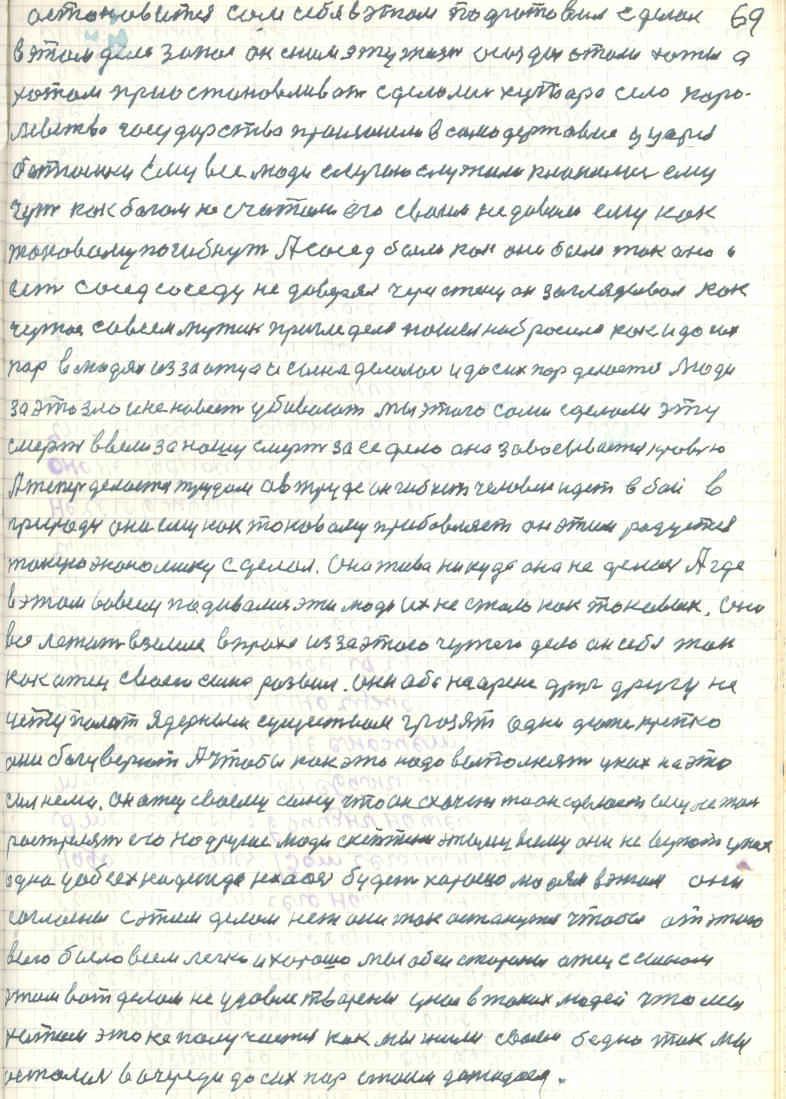 остановится сам себя в этом подготовил сделал 69
в этом деле запое он с ним эту жизнь этом хотел а
потом приостанавливат сделали хутора село коро-
левство государства пришли в самодержавие у царя
батюшки Ему все люди слугою служили кланялись ему
чут как богом не считали его своим не давали ему как
таковому погибнут А сосед было как они было так оно и
ест сосед соседу не доверял через стену он заглядывал как
чужое совсем мужик пригледел набросило как и до сих
пор в людях из за отца и сына делалос и до сих пор делается Люди
за это зло и ненавист убивают мы этого сами сделали эту
смерт ввели за нашу смерт за се дело она завоевывается кровью
А тепер делается трудом а в труде он гибнет человек идет в бой в
природу она ему как таковому прибавляет он этим радуется
такую экономику сделал. Она жива никуда она не делас А где
в этом во всем подевалися эти люди их не стало как таковых. Они
все лежат в земле в прахе из за этого чужого дела он себя так
как отец своего сына развил. Они оба на арене друг другу не
уступают ядерным существом грозят одни даже крепко
они богу верют А чтобы как это надо выполнят у них на это
сил нема. Он отец своему сыну что он схочет то он сделает ему не жал
растрелят его Но другие люди этому всему они не верют у них
одна у обеих надежда нхай будет хорошо людям в этом они
согласны с этим делом нет они так останутся чтобы от этого
всего было всем легко и хорошо мы обеи стороны отец с сыном
этим вот делом не удовлетварены у нас в таких людей что мы
хотим это не получается как мы жили своем бедно так мы
осталися в очереди до сих пор стоим дожидаем.